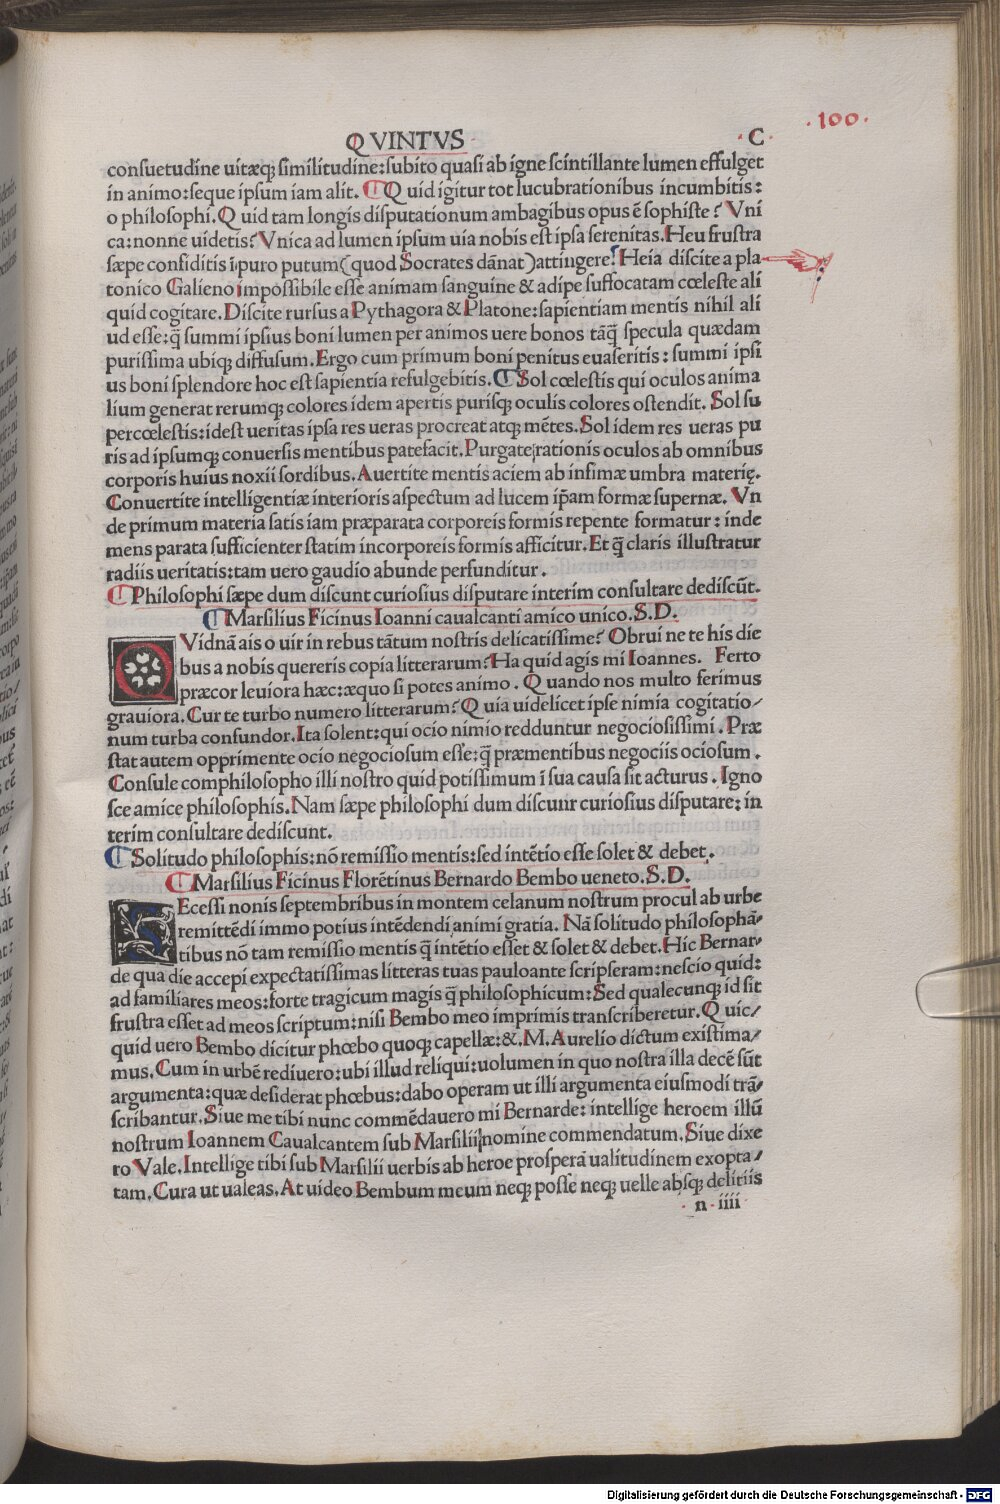 ·100·
QVINTVS
·C
consuetudine uitæq; similitudine: subito quasi ab igne scintillante lumen effulget
in animo: seque ipsum iam alit. ¶ Quid igitur tot lucubrationibus incumbitis:
o philosophi. Quid tam longis disputationum ambagibus opus ē sophiste? Vni
ca: nonne uidetis? Vnica ad lumen ipsum uia nobis est ipsa serenitas. Heu frustra
sæpe confiditis ī puro putum (quod Socrates dānat) attingere? Heia discite a pla
tonico Galieno impossibile esse animam sanguine & adipe suffocatam cœleste ali
quid cogitare. Discite rursus a Pythagora & Platone: sapientiam mentis nihil ali
ud esse: q̄ summi ipsius boni lumen per animos uere bonos tāq̄ specula quædam
purissima ubiq; diffusum. Ergo cum primum boni penitus euaseritis: summi ipsi
us boni splendore hoc est sapientia refulgebitis. ¶ Sol cœlestis qui oculos anima
lium generat rerumq; colores idem apertis purisq; oculis colores ostendit. Sol su
percœlestis: idest ueritas ipsa res ueras procreat atq; mētes. Sol idem res ueras pu
ris ad ipsumq; conuersis mentibus patefacit. Purgate rationis oculos ab omnibus
corporis huius noxii sordibus. Auertite mentis aciem ab infimæ umbra materię.
Conuertite intelligentiæ interioris aspectum ad lucem ip̄am formæ supernæ. Vn
de primum materia satis iam præparata corporeis formis repente formatur: inde
mens parata sufficienter statim incorporeis formis afficitur. Et q̄ claris illustratur
radiis ueritatis: tam uero gaudio abunde perfunditur.
¶ Philosophi sæpe dum discunt curiosius disputare interim consultare dediscūt.
¶ Marsilius Ficinus Ioanni caualcanti amico unico. S. D.
QVidnā ais o uir in rebus tātum nostris delicatissime? Obrui ne te his die
bus a nobis quereris copia litterarum? Ha quid agis mi Ioannes. Ferto
præcor leuiora hæc: æquo si potes animo. Quando nos multo ferimus
grauiora. Cur te turbo numero litterarum? Quia uidelicet ipse nimia cogitatio/
num turba confundor. Ita solent: qui ocio nimio redduntur negociosissimi. Præ
stat autem opprimente ocio negociosum esse: q̄ præmentibus negociis ociosum.
Consule comphilosopho illi nostro quid potissimum ī sua causa sit acturus. Igno
sce amice philosophis. Nam sæpe philosophi dum discunt curiosius disputare: in
terim consultare dediscunt.
¶ Solitudo philosophis: nō remissio mentis: sed intētio esse solet & debet.
¶ Marsilius Ficinus Florētinus Bernardo Bembo ueneto. S. D.
SEcessi nonis septembribus in montem celanum nostrum procul ab urbe
remittēdi immo potius intēdendi animi gratia. Nā solitudo philosophā/
tibus nō tam remissio mentis q̄ intētio esset & solet & debet. Hic Bernar/
de qua die accepi expectatissimas litteras tuas pauloante scripseram: nescio quid:
ad familiares meos: forte tragicum magis q̄ philosophicum: Sed qualecunq; id sit
frustra esset ad meos scriptum: nisi Bembo meo imprimis transcriberetur. Quic/
quid uero Bembo dicitur phœbo quoq; capellæ: &. M. Aurelio dictum existima/
mus. Cum in urbē rediuero: ubi illud reliqui: uolumen in quo nostra illa decē sūt
argumenta: quæ desiderat phœbus: dabo operam ut illi argumenta eiusmodi trā/
scribantur. Siue me tibi nunc commēdauero mi Bernarde: intellige heroem illū
nostrum Ioannem Caualcantem sub Marsilii nomine commendatum. Siue dixe
ro Vale. Intellige tibi sub Marsilii uerbis ab heroe prosperā ualitudinem exopta/
tam. Cura ut ualeas. At uideo Bembum meum neq; posse neq; uelle absq; delitiis
n iiii
Digitalisierung gefördert durch die Deutsche Forschungsgemeinschaft - DFG